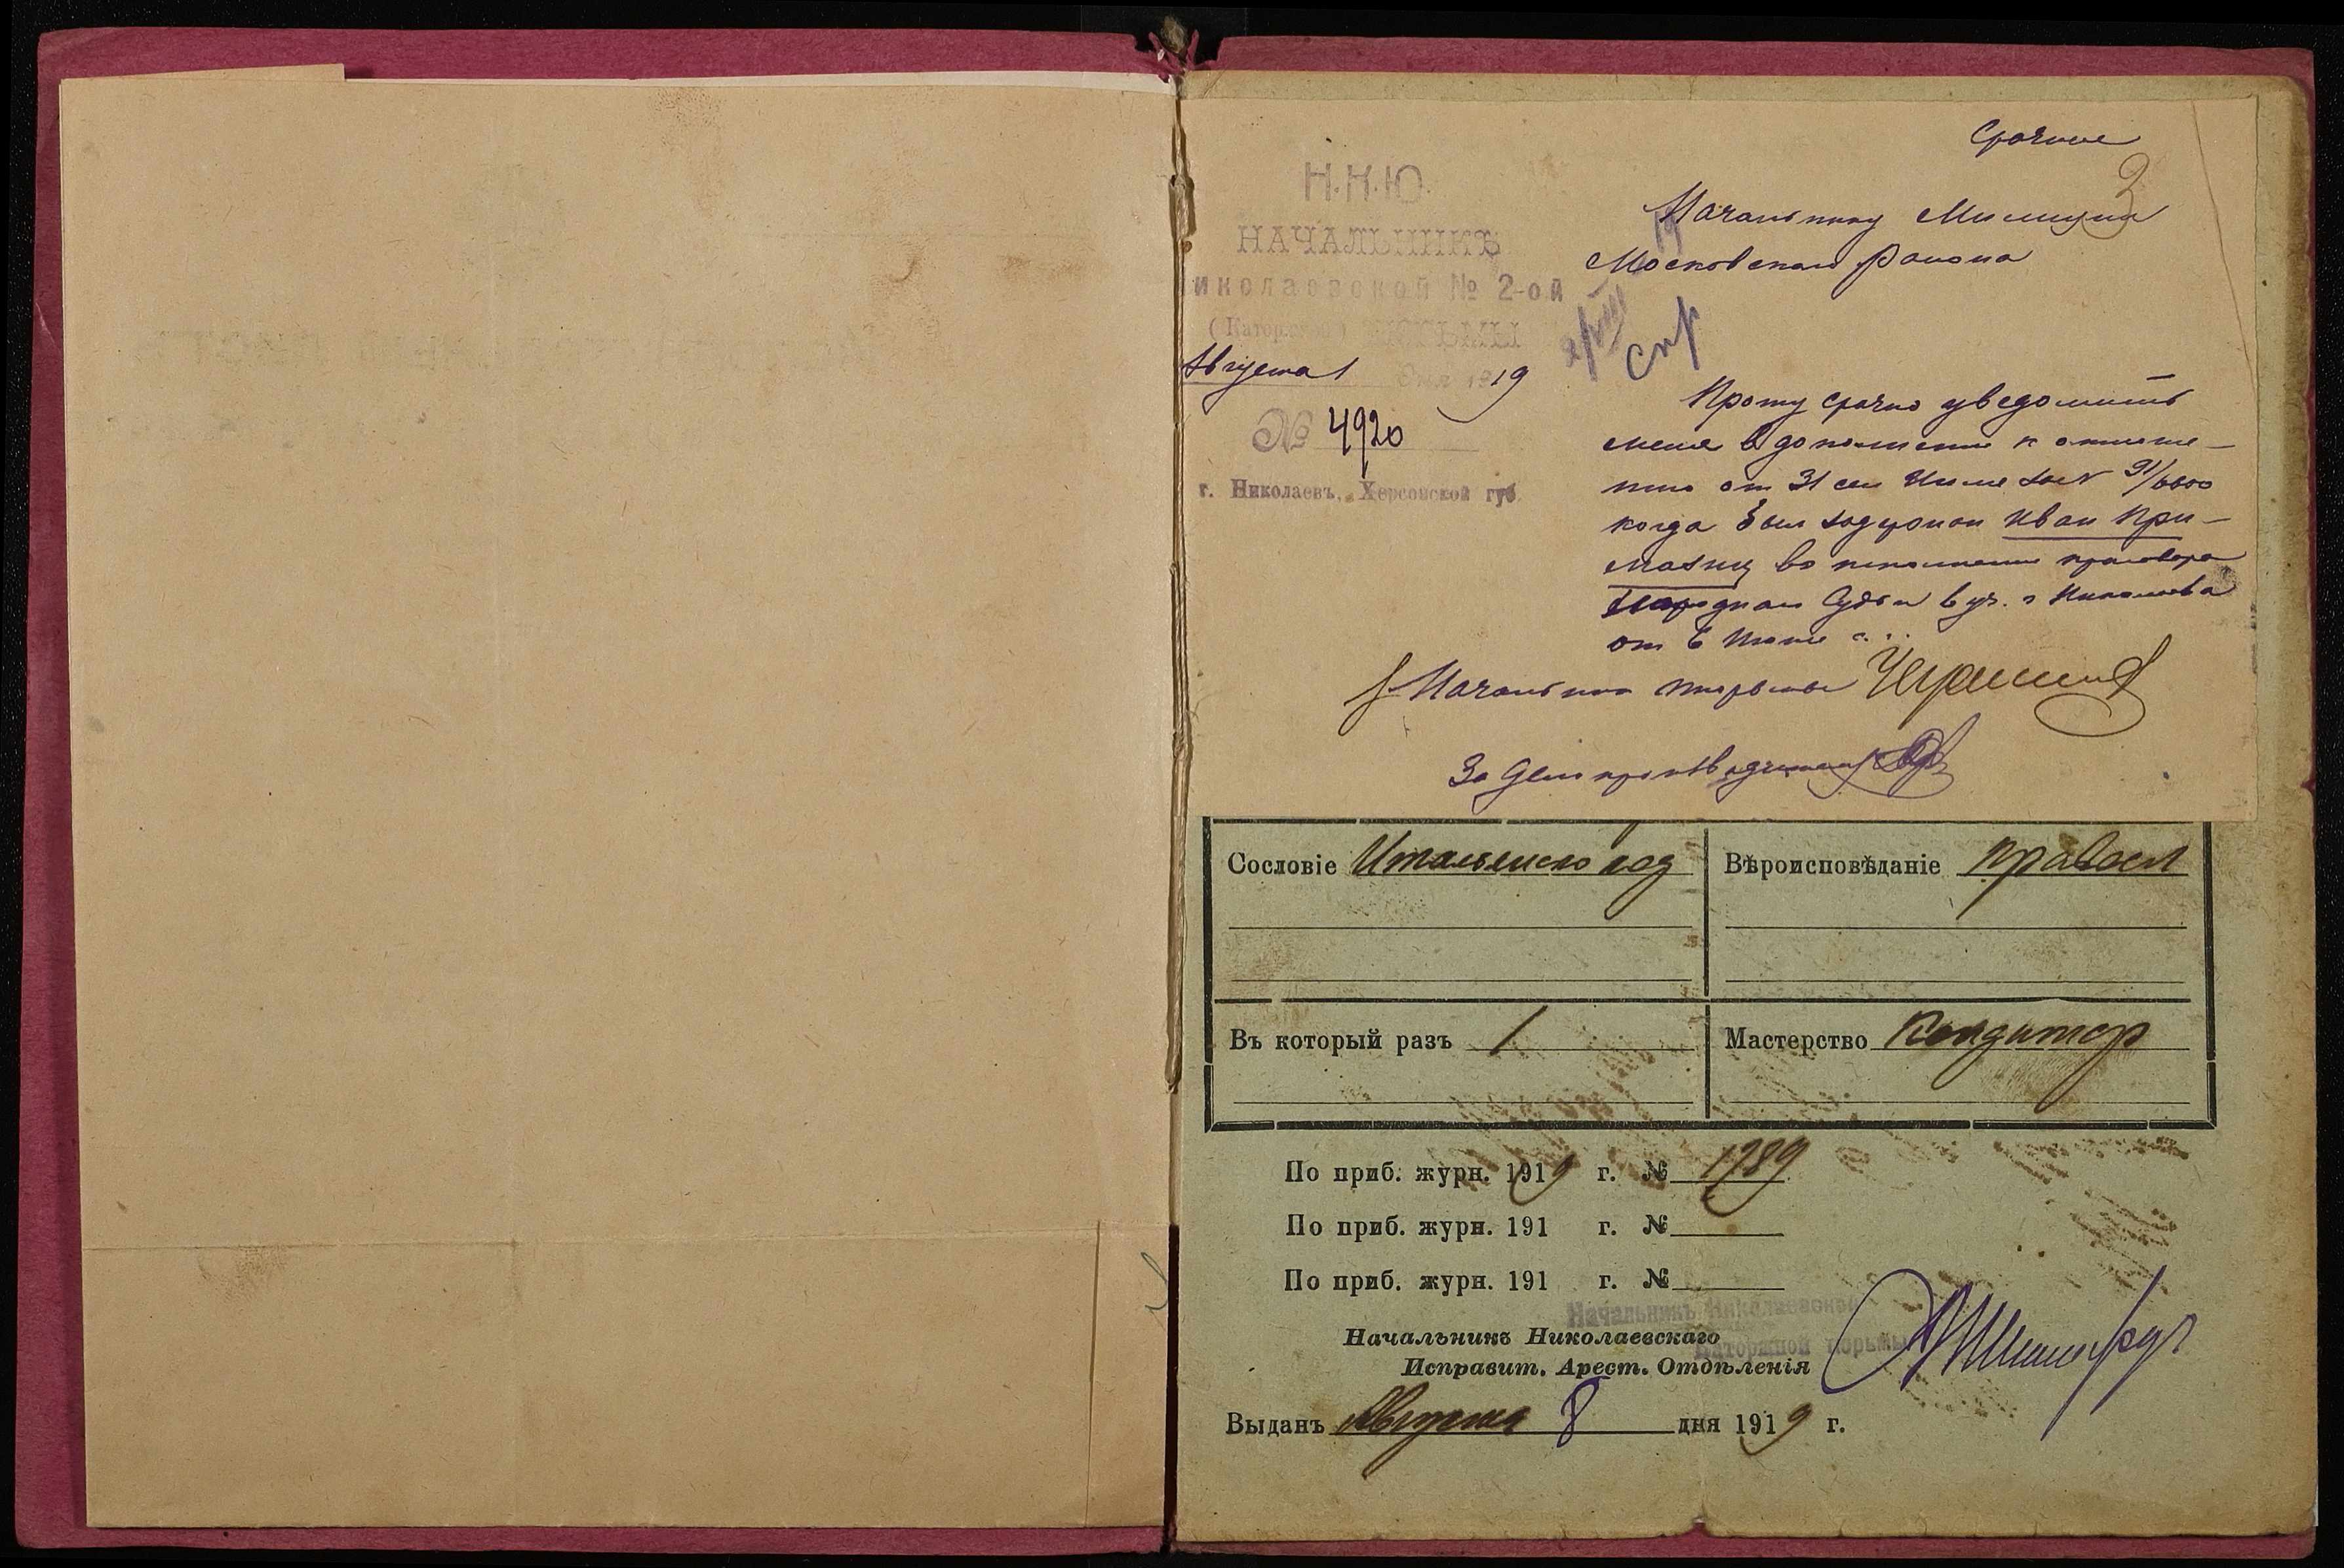 Срочно
3
Н.Н.Ю.
НАЧАЛЬНИКЪ
иколаевской № 2-ой
(Каторжной) ТЮРЬМЫ
Августа 1 дня 1919
№ 4920
г. Николаевъ, Херсонской губ.
Начальнику Милиции
Московскаго Района
спр
Прошу срочно уведомить
меня в дополнение к отноше-
нию от 31 сего Июля за № 91/6600
когда был задержан Иван При-
мазиц во исполнение приговора
Народнаго Судьи 6 уч. г Николаева
от 6 Июня с.
Начальник тюрьмы
За Делопроизводителя
Сословіе Итальянско под
Вѣроисповѣданіе правосл
Въ который разъ 1
Мастерство Кондитор
По приб. журн. 1919 г. № 1789
По приб. журн. 191 г. №
По приб. журн. 191 г. №
Начальникъ Николаевской
Каторжной тюрьмы
Начальникъ Николаевскаго
Исправит. Арест. Отдѣленія
Выданъ Августа 8 дня 1919 г.